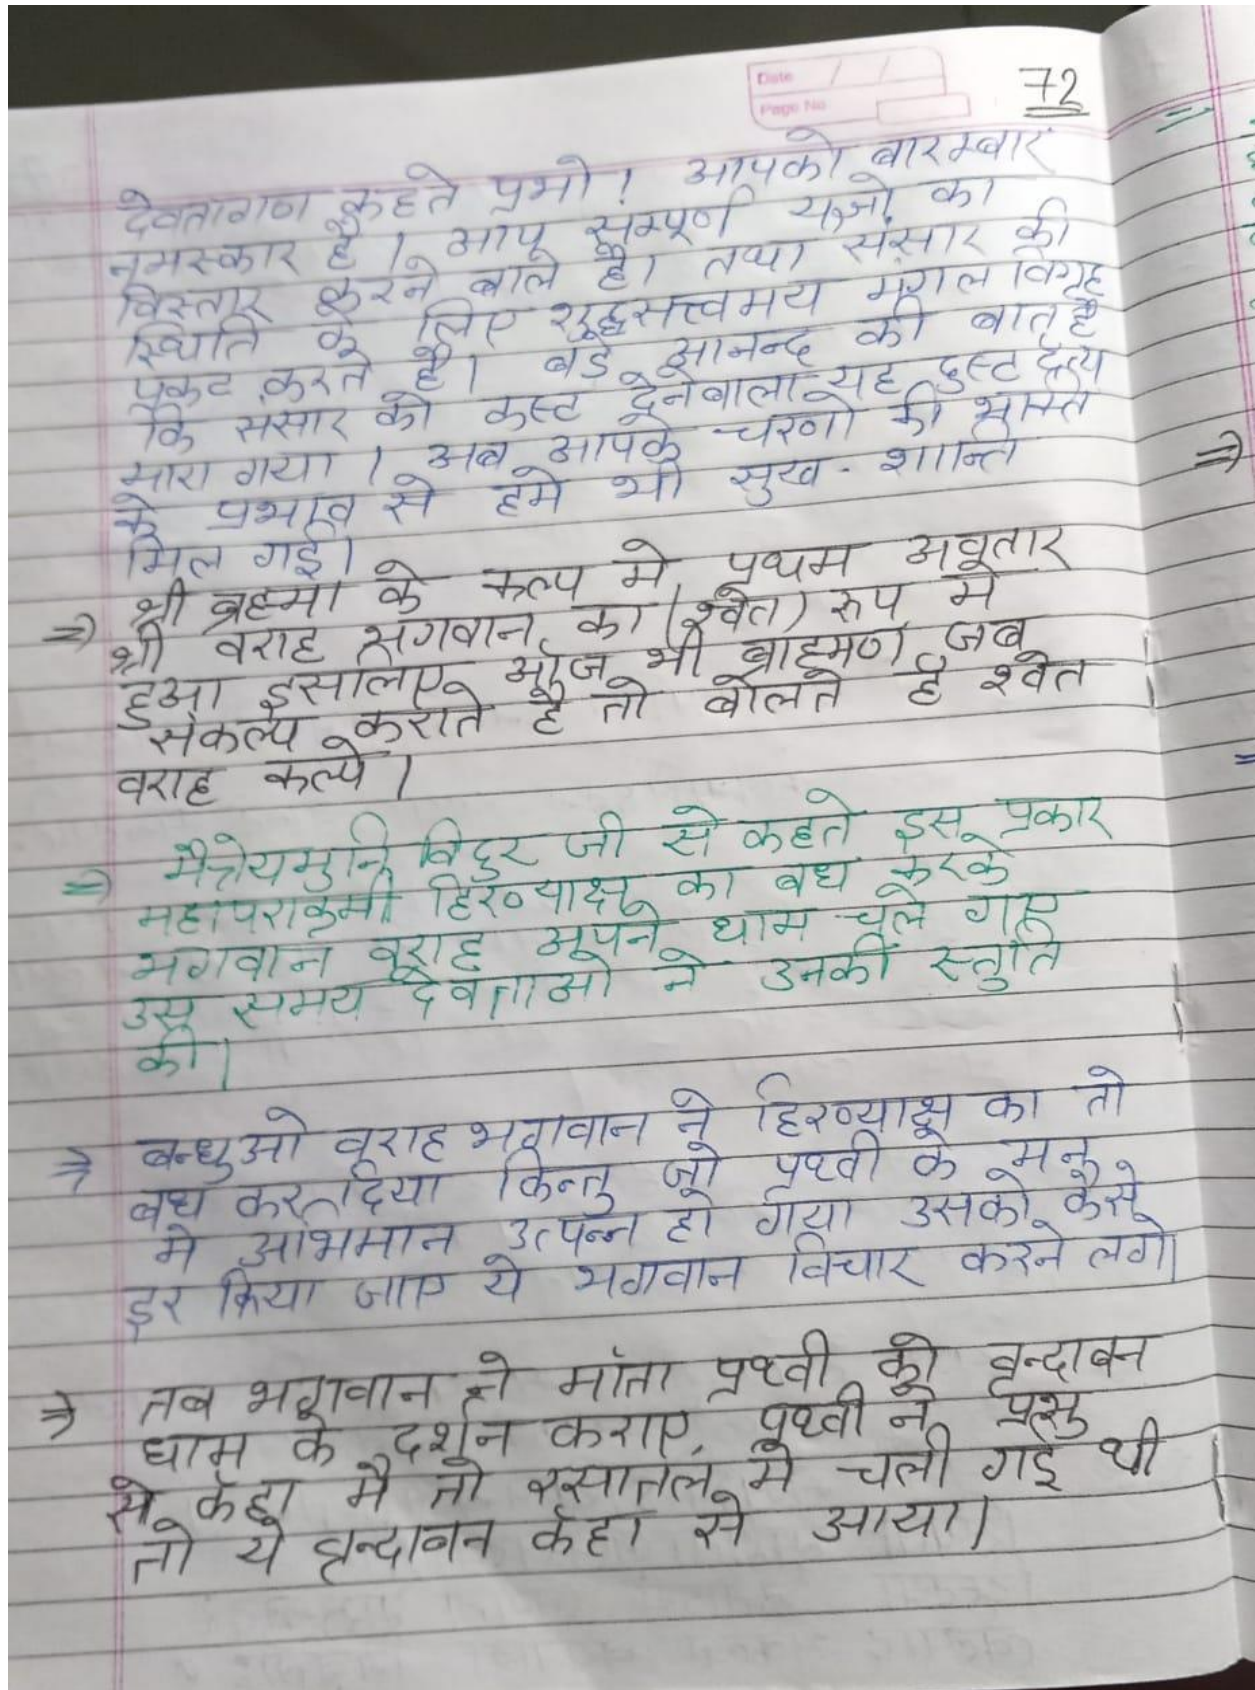 Date / /
Page No
72
देवतागण कहते प्रभो! आपको बारम्बार
नमस्कार है। आप सम्पूर्ण यज्ञो का
विस्तार करने बाले है। तथा संसार की
स्थिति के लिए शुद्धसत्त्वमय मंगल विग्रह
प्रकट करते है। बडे आनन्द की बात है
कि संसार को कस्ट देनेबाला यह दुस्ट दैत्य
मारा गया। अब आपके चरणो की भक्ति
के प्रभाव से हमे भी सुख - शान्ति
मिल गई।
⇒ श्री ब्रह्मा के कल्प मे प्रथम अवतार
श्री वराह भगवान का (श्वेत) रुप मे
हुआ इसलिए आज भी ब्राह्मण जब
संकल्प कराते है तो बोलते है श्वेत
वराह कल्पे।
⇒ मैत्रेयमुनि विदुर जी से कहते इस प्रकार
महापराक्रमी हिरण्याक्ष का बध करके
भगवान वराह अपने धाम चले गए
उस समय देवताओ ने उनकी स्तुति
की।
⇒ बन्धुओ वराह भगवान ने हिरण्याक्ष का तो
बध कर दिया किन्तु जो प्रथ्वी के मन
मे अभिमान उत्पन्न हो गया उसको कैसे
दूर किया जाए ये भगवान विचार करने लगे।
⇒ तब भगवान ने माँता प्रथ्वी को वृन्दाबन
धाम के दर्शन कराए, पृथ्वी ने प्रभु
से कहा मै तो रसातल मे चली गई थी
तो ये वृन्दावन कँहा से आया।